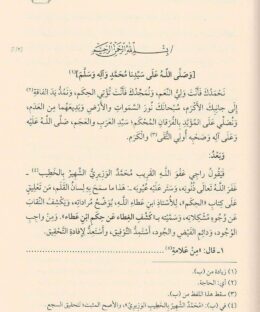 بسم الله الرحمن الرحيم
[وَصَلَّى اللهُ عَلَى سَيِّدِنَا مُحَمَّدٍ وَآلِهِ وَسَلَّمَ](١)
نَحْمَدُكَ فَأَنْتَ وَلِيُّ النِّعَمِ، وَنُمَجِّدُكَ فَأَنْتَ تُؤْتِي الحِكَمِ، وَنَمُدُّ يَدَ الفَاقَةِ(٢)
إِلَى جَانِبِكَ الأَكْرَمِ، سُبْحَانَكَ نُورَ السَّمَوَاتِ وَالأَرْضِ وَبَدِيعُهُمَا مِنَ العَدَمِ،
وَنُصَلِّي عَلَى المُؤَيَّدِ بِالفُرْقَانِ المُحْكَمِ(٣) سَيِّدِ العَرَبِ وَالعَجَمِ، صَلَّى اللهُ عَلَيْهِ
وَعَلَى آلِهِ وَصَحْبِهِ أُولِي التُّقَى وَالكَرَمِ.
وَبَعْدُ:
فَيَقُولُ رَاجِي عَفْوَ القَرِيبِ مُحَمَّدٌ الوَزِيرِيُّ الشَّهِيرُ بِالخَطِيبِ(٤) ـ
غَفَرَ اللهُ تَعَالَى ذُنُوبَهُ، وَسَتَرَ عَلَيْهِ عُيُوبَهُ ـ: هَذَا مَا سَمَحَ بِهِ لِسَانُ القَلَمِ، مِنْ تَعْلِيقٍ
عَلَى كِتَابِ «الحِكَمِ»، لِلْأُسْتَاذِ ابْنِ عَطَاءِ اللهِ، يُوَضِّحُ مُرَادَاتِهِ، وَيَكْشِفُ النِّقَابَ
عَنْ وُجُوهِ مُشْكِلَاتِهِ، وَسَمَّيْتُهُ بـ«كَشْفِ الغِطَاءِ عَنْ حِكَمِ ابْنِ عَطَاءِ»، وَمِنْ وَاجِبِ
الوُجُودِ، وَدَائِمِ الفَيْضِ وَالجُودِ، أَسْتَمِدُّ التَّوْفِيقَ، وَأَسْتَعِدُّ لِإِفَادَةِ التَّحْقِيقِ.
١ـ قال: «مِنْ عَلَامَةِ(٥)
(١) زيادة من (ب).
(٢) أي: الحاجة.
(٣) سقط هذا اللفظ من (ب).
(٤) في (ب): «مُحَمَّدٌ الشَّهِيرُ بالخطيبِ الوزيريِّ»، والأصح المثبت؛ لتحقيق السجع